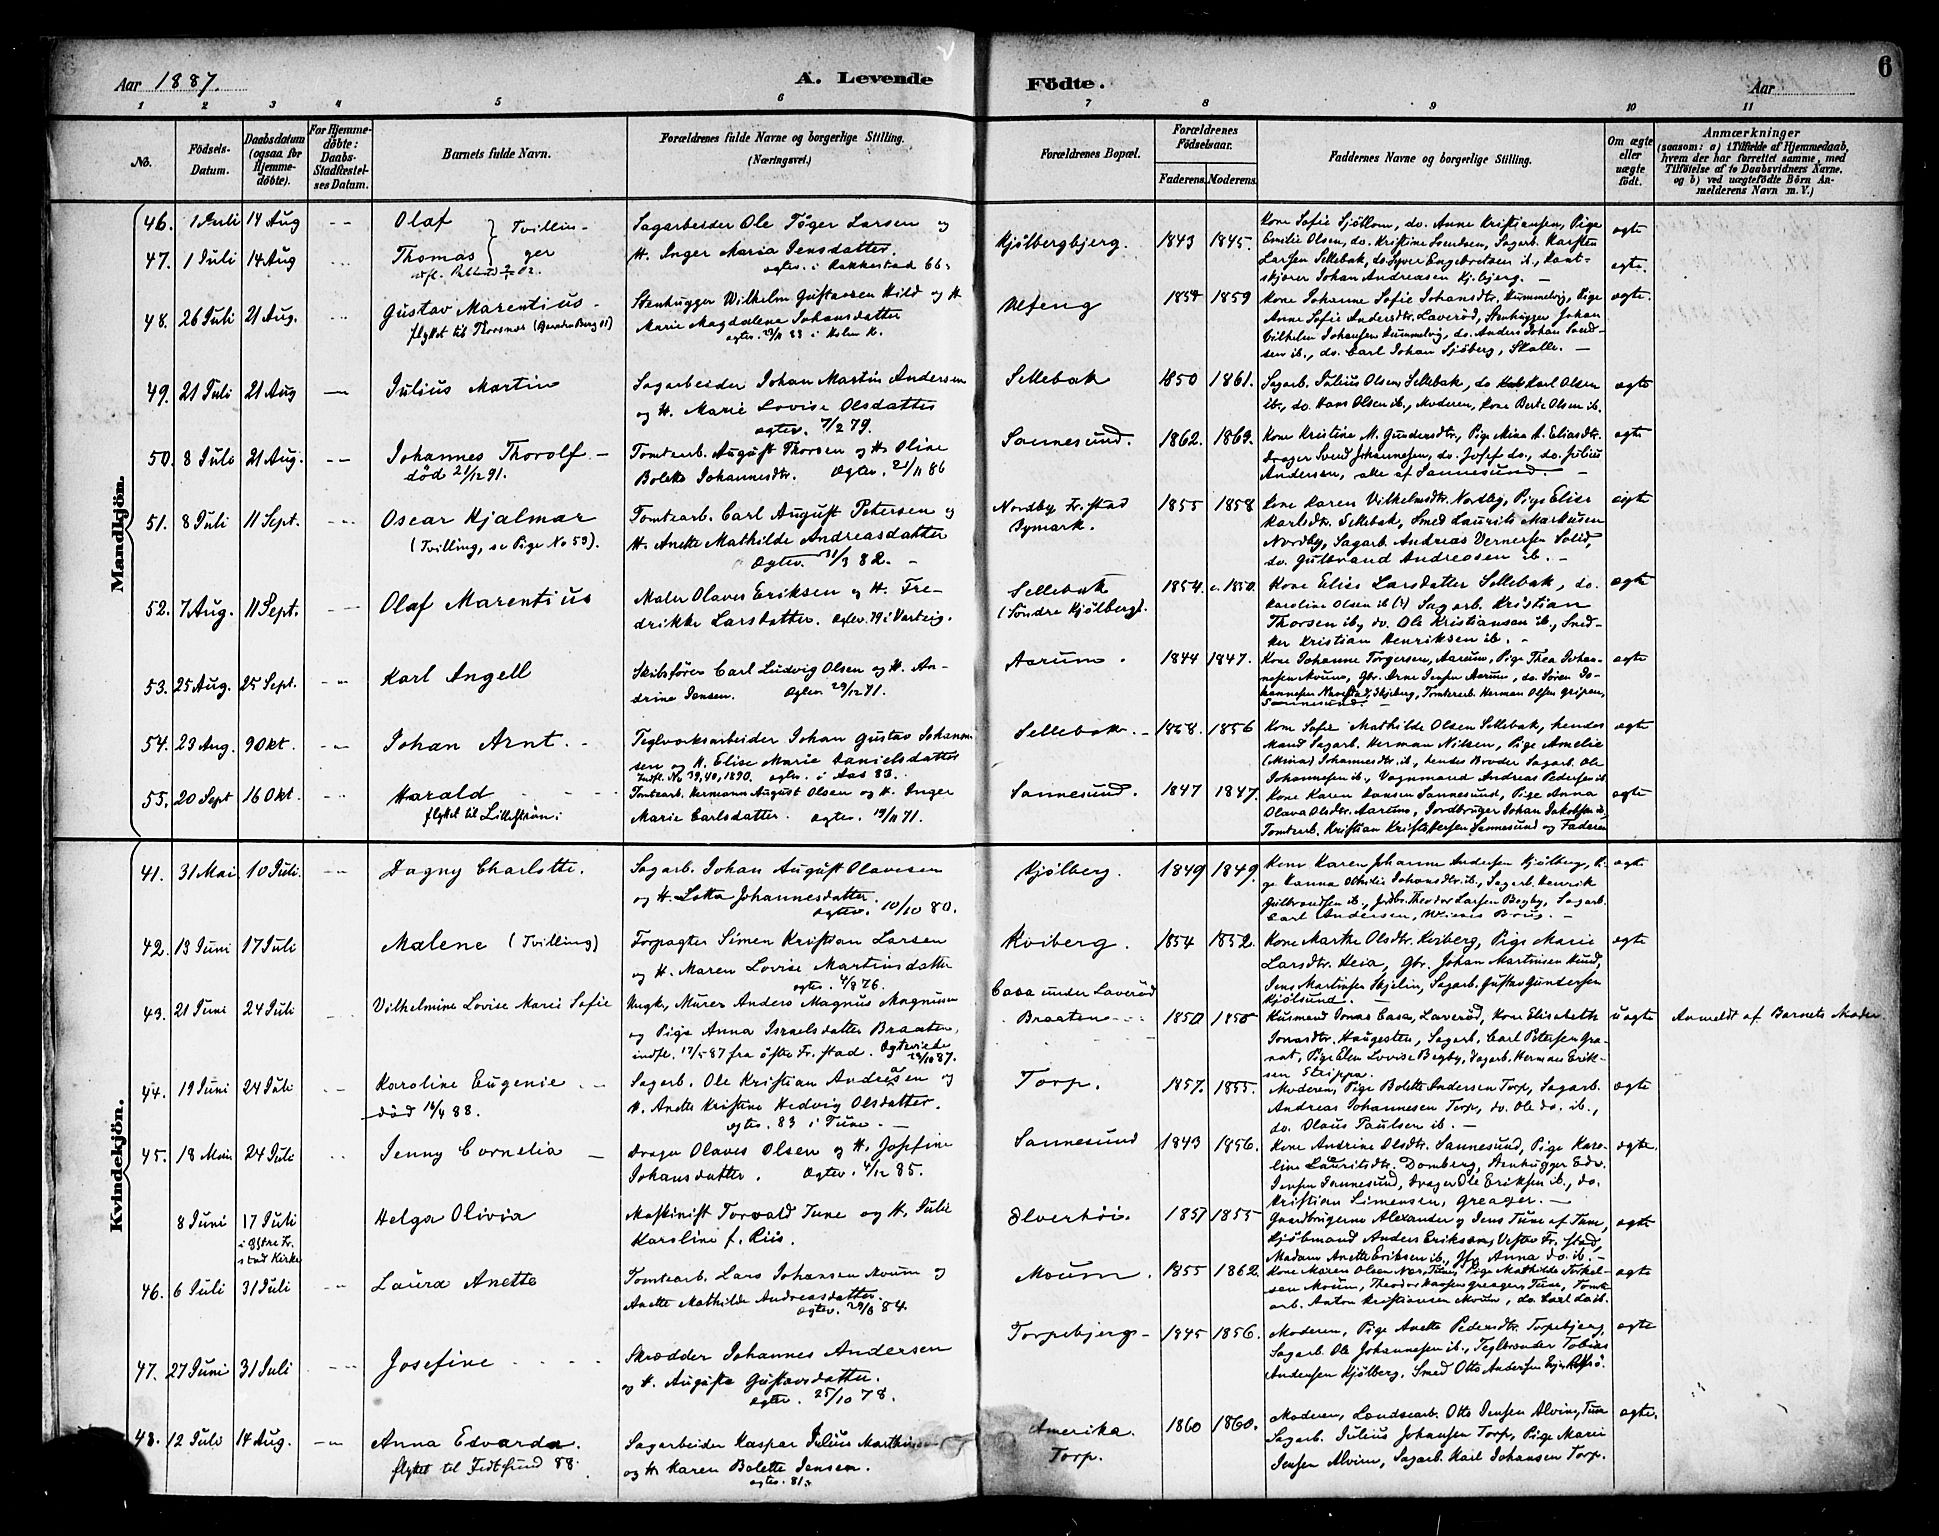 Aar 1887.
A. Levende
Födte.
Aar
6
1 2 3 4 5 6 7 8 9 10 11
No.
Födsels-Datum.
Daabsdatum (ogsaa for Hjemme-döbte).
For Hjemme-döbte: Daabs-Stadfæstel-ses Datum.
Barnets fulde Navn.
Forældrenes fulde Navne og borgerlige Stilling.
(Næringsvei.)
Forældrenes Bopæl.
Forældrenes Födselsaar.
Faderens. Moderens.
Faddernes Navne og borgerlige Stilling.
Om ægte eller uægte födt.
Anmærkninger
(saasom: a) i Tilfælde af Hjemmedaab,
hvem der har forrettet samme, med
Tilföielse af to Daabsvidners Navne.
og b) ved uægtefödte Börn An-
melderens Navn m. V.)
Mandkjön.
46. 1 Juli 14 Aug -- Olaf Tvillin-
Sagarbeider Ole Töger Larsen og
47. 1 Juli 14 Aug Thomas ger
H. Inger Maria Jensdatter.
ogtev. i Rakkestad 66.
Kjölbergbjerg. 1843 1845.
Kone Sofie Sjöblom, do. Anne Kristiansen, Pige
Emilie Olsen, do. Kristine Svendsen, Sagarb. Karsten
Larsen Sellebak, do Syver Engebretsen ib., Baat-
skjörer Johan Andreasen Kjölbjerg. —
ægte
ægte.
48. 26 Juli 21 Aug. Gustav Marentius -
flyttet til Thorsnes
Stenhugger Wilhelm Gustavsen Hild og H
Marie Magdalena Johansdatter
1854 1859
Kone Johanne Sofie Johansdtr. Hummelvig, Pige
Anne Sofie Andersdtr. Laveröd, Stenhugger Johan
Vilhelm Johansen Hummelvig, do. Anders Johan Svend-
sen ib., do. Carl Johan Sjöberg, Skalle. —
ægte.
49. 21 Juli 21 Aug — Julius Martin
Sagarbeider Johan Martin Andersen
og H. Marie Lovise Olsdatter
ogtev. 7/2 79.
Sellebak 1850 1861.
Sagarb. Julius Olsen Sellebak, do Karl Olsen
ib., do. Hans Olsen ib., Moderen, Kone Berte Olsen ib.
ægte
50. 8 Juli 21 Aug. -- Johannes Thorolf —
död 21/12 91.
Tomtearb. August Thorsen og H. Oline
Bolette Johannesdtr. Ogtev. 21/11 86
Sannesund. 1862. 1863.
Kone Kristine M. Gundersdtr., Pige Mina A. Eliasdtr.
Drager Svend Johannesen, do. Josef do., do. Julius
Andersen, alle af Sannesund. —
ægte
51. 8 Juli 11 Sept. Oscar Hjalmar
(Tvilling, se Pige No 59).
Tomtearb. Carl August Petersen og
H. Anette Mathilde Andreasdatter
Ogtev. 31/3 82. -
Nordby Fr. stad
Bymark.
1855 1858
Kone Karen Vilhelmsdtr. Nordby, Pige Elise
Karlsdtr. Sellebak, Smed Laurits Markusen
Nordby, Sagarb. Andreas Vernersen Solid,
do. Gulbrand Andreasen ib. -
ægte
52. 7 Aug. 11 Sept. Olaf Marentius
Maler Olaves Eriksen og H. Fre-
drikke Larsdatter. Ogtev. 79 i Varteig.
Sellebak
(Söndre Kjölberg).
1854. c. 1850.
Kone Elise Larsdatter Sellebak, do.
Karoline Olsen ib (?) Sagarb. Kristian
Thorsen ib, do. Ole Kristiansen ib., Sned-
ker Kristian Henriksen ib. -
ægte
53. 25 Aug. 25 Sept. -- Karl Angell
Skibsförer Carl Ludvig Olsen og H. An-
drine Jensen. Ogtev 29/12 71.
Aarum. 1844 1847.
Kone Johanne Torgersen, Aarum, Pige Thea Johan-
nesen Moum, Gbr. Arne Jensen Aarum, do. Sören Jo-
hannesen Navestad, Skjeberg, Tomtearb. Herman Olsen Greger,
Sannesund. —
ægte
54. 23 Aug. 9 Okt. -- Johan Arnt. -
Teglværksarbeider Johan Gustav Johann-
sen og H. Elise Marie Danielsdatter
Indfl. No 39,40,1890. ogtev. i Aas 83.
Sellebak. - 1858. 1856
Kone Sofie Mathilde Olsen Sellebak, hendes
Mand Sagarb. Herman Nilsen, Pige Amelie
(Mina) Johannesdtr. ib., hendes Broder Sagarb. Ole
Johannesen ib., Vognmand Andreas Pedersen ib.
ægte
55. 20 Sept 16 Okt. Harald
flyttet til Lilleström.
Tomtearb. Hermann August Olsen og H. Inger
Marie Carlsdatter. Ogtev. 19/11 71.
Sannesund. 1847 1847.
Kone Karen Hansen Sannesund, Pige Anna
Olava Olsdtr. Aarum, Jordbruger Johan Jakobsen ib,
Tomtearb. Kristian Kristoffersen Sannesund og Faderen
ægte
Kvindekjön.
41. 31 Mai 10 Juli. -- Dagny Charlotte.
Sagarb. Johan August Olavesen
og H. Lotta Johannesdatter.
ogtev. 10/10 80.
Kjölberg. 1849 1849.
Kone Karen Johanne Andersen Kjölberg, Pi-
ge Hanna Othilie Johansdtr. ib., Sagarb. Henrik
Gulbrandsen ib., Jordbr. Theodor Larsen Begby, Sagarb.
Carl Andersen, Wiens Brug. —
ægte
42. 13 Juni 17 Juli Malene (Tvilling)
Forpagter Simen Kristian Larsen
og H. Maren Lovise Martinsdatter
ogtev. 4/3 76.
Kviberg. 1854 1852.
Kone Marthe Olsdtr. Kviberg, Pige Marie
Larsdtr. Heia, Gbr. Johan Martinsen Hund,
Jens Martinsen Skjelin, Sagarb. Gustav Gundersen
Kjölsund. —
ægte
43. 21 Juni 24 Juli Vilhelmine Lovise Marie Sofie
Ungk. Murer Anders Magnus Magnusen
og Pige Anna Israelsdatter Braaten,
indfl. 17/5 87 fra östre Fr. stad. Ogteviede
29/10 87.
Casa under Laveröd
Braaten - - - 1850 1855
Husmand Jonas Casa, Laveröd, Kone Elisabeth
Jonasdtr. Haugesten, Sagarb. Carl Petersen Gra-
nat, Pige Elen Lovise Begby, Sagarb. Hermes Erik-
sen Strippa.
uægte
Anmeldt af Barnets Moder
44. 19 Juni 24 Juli -- Karoline Eugenie - -
död 16/4 88.
Sagarb. Ole Kristian Andreasen og
H. Anette Kristine Hedvig Olsdatter.
ogtev. 83 i Tune. —
Torp. 1857. 1855.
Moderen, Pige Bolette Andersen Torp, Sagarb.
Andreas Johannesen Torp, do. Ole do. ib.,
do. Olaus Paulsen ib. —
ægte
45. 18 Mai 24 Juli Jenny Cornelia —
Drager Olaves Olsen og H. Josefine
Johansdatter. Ogtev. 4/12 85.
Sannesund 1843 1856.
Kone Andrine Olsdtr. Sannesund, Pige Karo-
line Lauritsdtr. Domberg, Stenhugger Edv.
Jensen Sannesund, Drager Ole Eriksen ib., do.
Kristian Simensen, Greager. —
ægte.
8 Juni 17 Juli
i Östre Fr.
stad Kirke
Helga Olivia
Maskinist Torvald Tune og H. Julie
Karoline f. Riis.
Elverhöi. 1857 1855
Gaardbrugerne Alexander og Jens Tune af Tune,
Kjöbmand Anders Eriksen, Vestre Fr. stad,
Madam Anette Eriksen ib., Anna do. ib. -
ægte
46. 6 Juli 31 Juli -- Laura Anette
Tomtearb. Lars Johansen Moum og
Anette Mathilde Andreasdatter.
Moum. 1855 1862.
Kone Maren Olsen Nes, Tune, Pige Mathilde Torkel-
sen Moum, Theodor Hansen Greager, Tune, Tomte
arb. Anton Kristiansen Moum, do. Carl do ib.
ægte
47. 27 Juni 31 Juli Josefine - - - -
Skrædder Johannes Andersen
og H. Augusta Gustavsdatter.
Ogtev. 25/10 78.
Torpebjerg - 1845 1856.
Moderen, Pige Anette Pedersdtr. Torpebjerg,
Sagarb. Ole Johannesen ib., Teglbrænder Tobias
Andersen Kjölberg, Smed Otto Andersen
ægte
48. 12 Juli 14 Aug. -- Anna Edvarda.
flyttet til Jedtsund 88.
Sagarbeider Kaspar Julius Marthinsen
og H Karen Bolette Jensen.
ogtev. 81.
Amerika.
Torp.
1860 1860.
Moderen, Landsarb. Otto Jensen Alvim, Tune
Sagarb. Julius Johansen Torp, Pige Marie
Jensen Alvim, Sagarb. Karl Johansen Torp.
ægte.